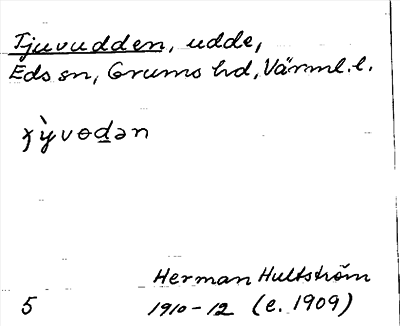 Tjuvudden, udde,
Eds sn, Grums hd, Värml. l.
Herman Hultström
5 1910-12 (e. 1909)